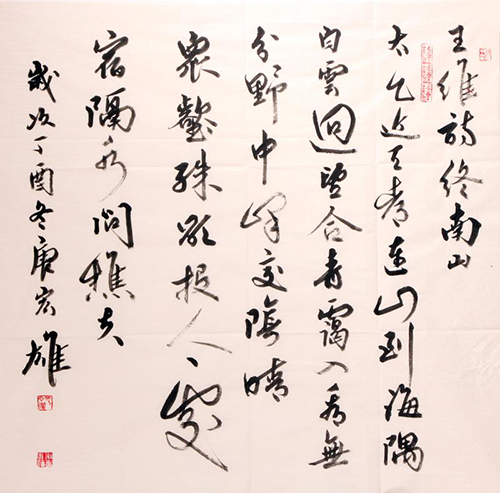 王維詩終南山
太乙近天都連山到海隅
白雲迴望合青靄入看無
分野中峰變陰晴
衆壑殊欲投人處
宿隔水問樵夫
歲次丁酉冬宏雄